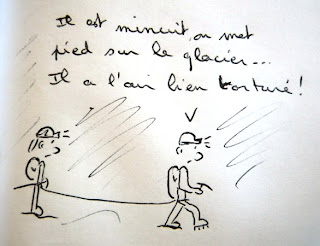 Il est minuit, on met
pied sur le glacier...
Il a l'air bien torturé !